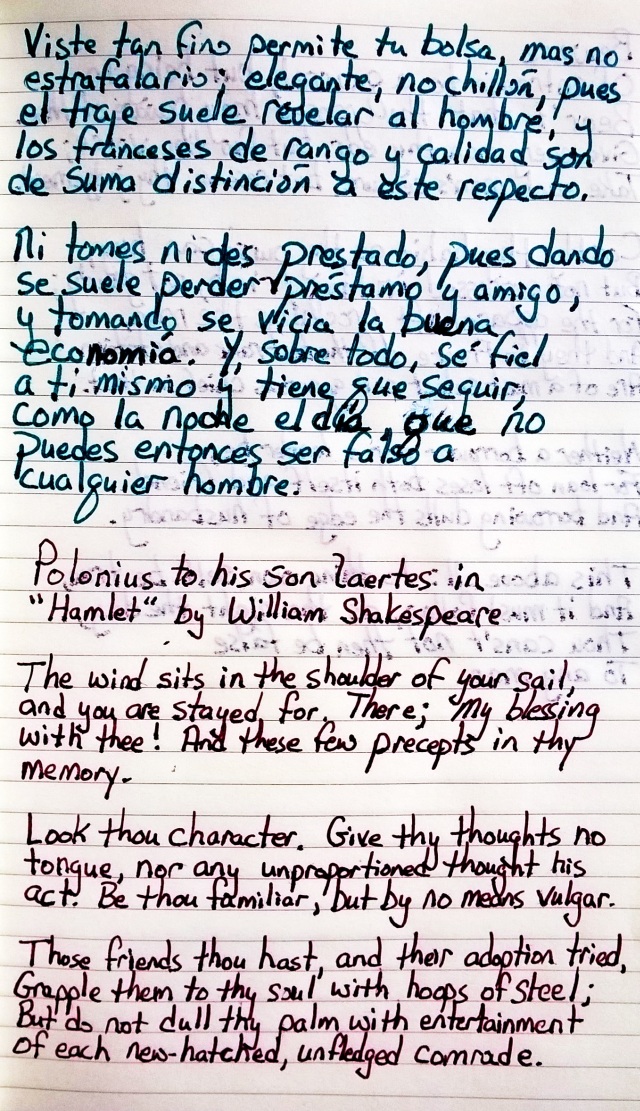 Viste tan fino permite tu bolsa, mas no
estrafalario; elegante, no chillón, pues
el traje suele revelar al hombre, y
los franceses de rango y calidad son
de suma distinción a este respecto.
Ni tomes ni des prestado, pues dando
se suele perder préstamo y amigo,
y tomando se vicia la buena
economía. Y, sobre todo, sé fiel
a ti mismo y tiene que seguir,
como la noche el día, que no
puedes entonces ser falso a
cualquier hombre.
Polonius to his son Laertes in
"Hamlet" by William Shakespeare
The wind sits in the shoulder of your sail,
and you are stayed for. There; My blessing
with thee! And these few precepts in thy
memory.
Look thou character. Give thy thoughts no
tongue, nor any unproportioned thought his
act. Be thou familiar, but by no means vulgar.
Those friends thou hast, and their adoption tried,
Grapple them to thy soul with hoops of steel;
But do not dull thy palm with entertainment
of each new-hatched, unfledged comrade.